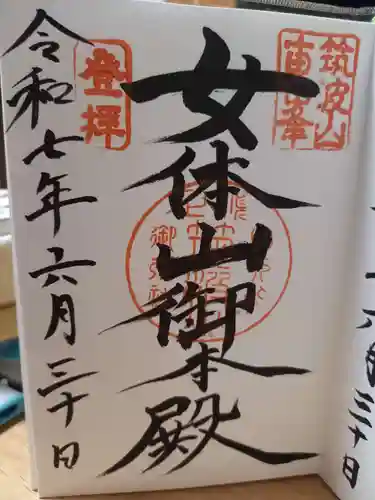 筑波山
登拝
女体山御本殿
令和七年六月三十日
六月三十日